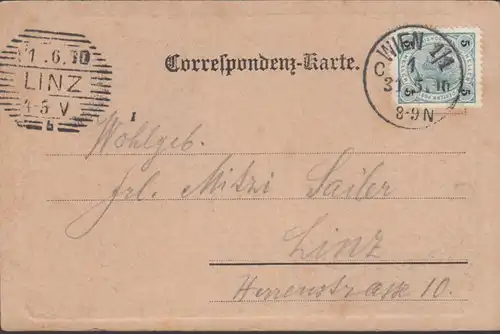 Correspondenz-Karte.
1.6.00
LINZ
4-5 V
b
WIEN 1/1
1
8-9N
5 5
5 5
I
Wohlgeb.
Frl. Mitzi Sailer
Linz
Herrenstrasse 10.